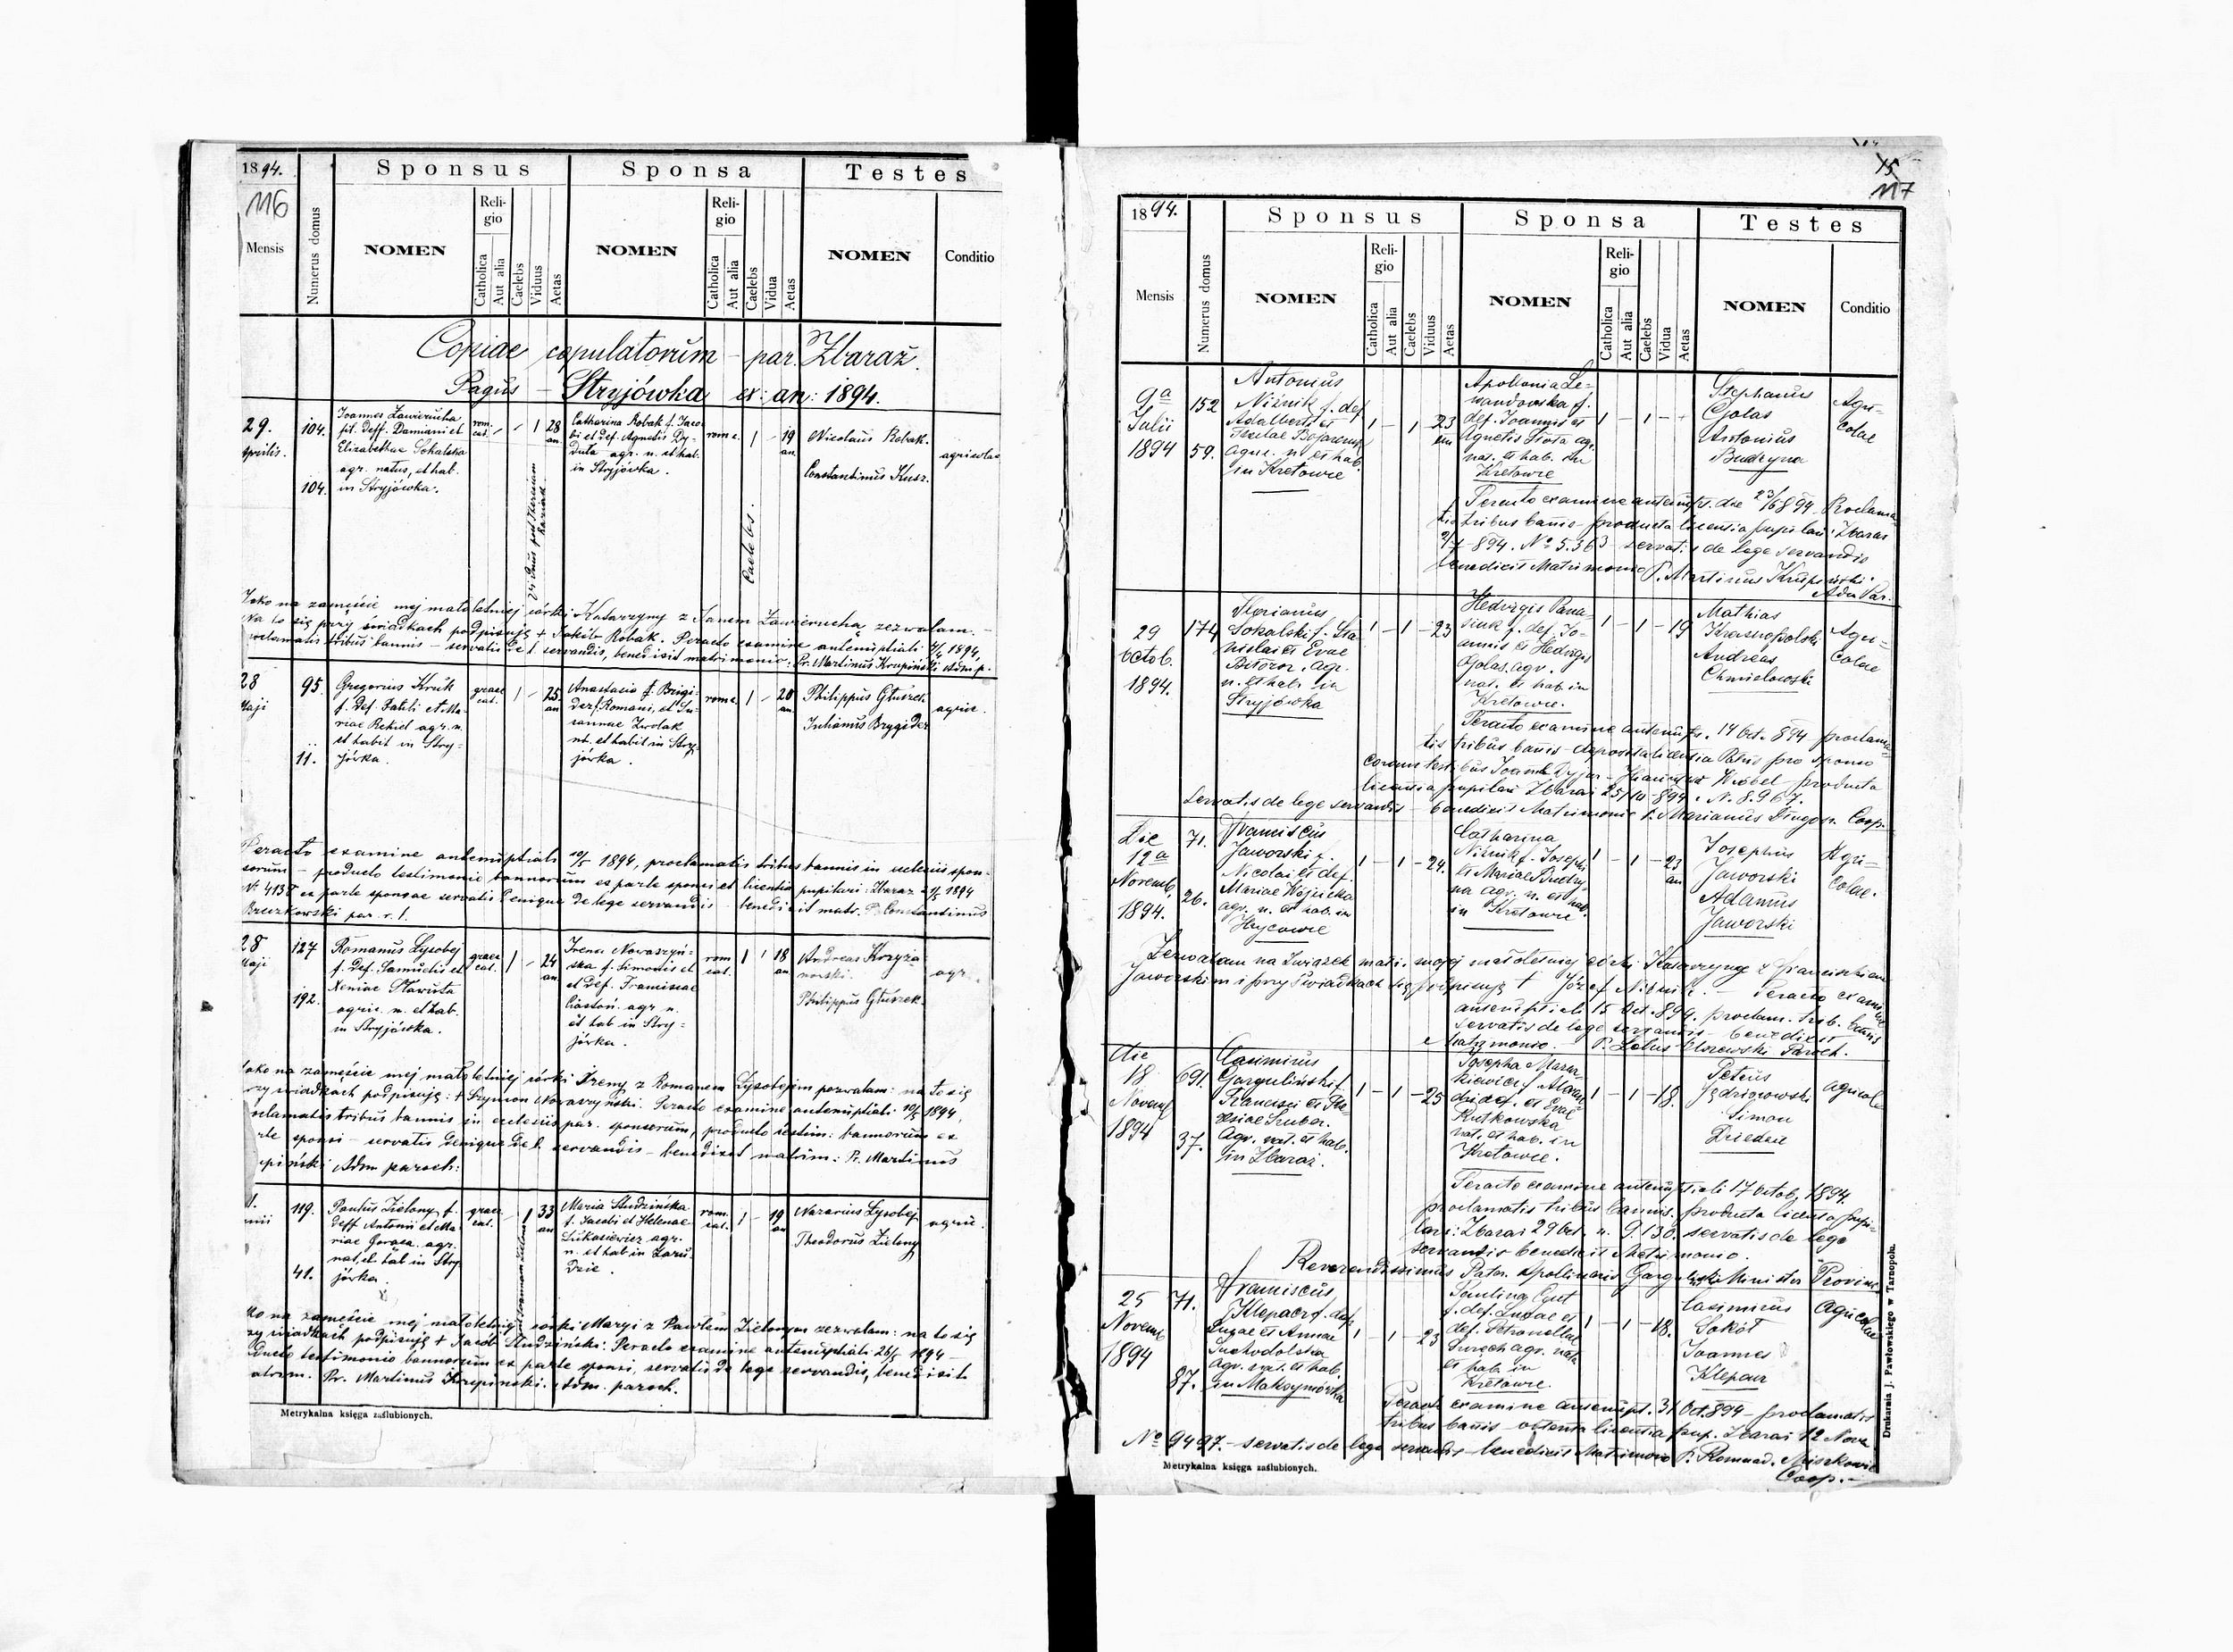 1894.
116
Mensis
Numerus domus
Sponsus
NOMEN
Religio
Catholica
Aut alia
Caelebs
Viduus
Aetas
Sponsa
NOMEN
Religio
Catholica
Aut alia
Caelebs
Vidua
Aetas
Testes
NOMEN
Conditio
Copiae copulatorum – par. Zbaraż.
Pagus – Stryjówka ex: an: 1894.
29.
Aprilis.
104.
104.
Joannes Zawierucha
fil. deff. Damiani et
Elizabethae Sokalska
agr. natus, et hab.
in Stryjówka.
rom. cat.
1 28 an.
Catharina Robak f. Jaco-
bi et def. Agnetis Dy-
duła agr. n. et hab.
in Stryjówka.
rom c. 1 – 19 an.
Nicolaus Robak.
Constantinus Kusz.
agricolae
Caelebs.
Jako na zamęście mej małoletniej córki Katarzyny z Janem Zawieruchą zezwalam. –
Na to się przy świadkach podpisuję + Jakób Robak. Peracto examine antenuptiali 1894,
proclamatis tribus bannis – servatis de l. servandis, benedixit matrimonio: Pr. Martinus Krupiński Adm. p.
28
Maji
95.
11.
Gregorius Kruk
f. def. et Ma-
riae Rekieł agr. n.
et habit in Stry-
jówka.
graec cat. 1 – 25 an
Anastasia f. Brigi-
der Romani, et Su-
sannae Zwolak
nt. et habit in Stry-
jówka.
rom c. 1 – 20 an.
Philippus Głuszek
Julianus Brygider
agric.
Peracto examine antenuptiali 10/5 1894, proclamatis tribus bannis in ecclesiis spon-
sorum – producto testimonio bannorum ex parte sponsi et licentia pupilari: Zbaraż 1894
№ ex parte sponsae servatis denique de lege servandis benedixit matr. P. Constantinus
par. r. l.
28
Maji
127
192.
Romanus Łysobej
f. def. Samuelis et
Xeniae
agric. n. et hab.
in Stryjówka.
graec cat. 1 – 24 an
Irena Nowaszyń-
ska f. Simonis et
et def. Franciscae
agr. n.
et hab in Stry-
jówka.
rom cat. 1 18 an
Andreas Krzyża-
nowski.
Philippus Głuszek.
agr.
Jako na zamęście mej małoletniej córki Ireny z Romanem Łysobejem pozwalam: na to się
przy świadkach podpisuję: + Szymon Nowaszyński. Peracto examine antenuptiali 10/5 1894,
proclamatis tribus bannis in ecclesiis par. sponsorum, producto testim: bannorum ex
parte sponsi – servatis denique de l. servandis – benedixit matrim: Pr. Martinus
Krupiński Adm. paroch:
119.
41.
Paulus Zielony f.
deff. Antonii et Ma-
riae agr.
nat. et hab in Stry-
jówka.
graec cat. – 1 33 an
Maria Studzińska
f. Jacobi et Helenae
Łukasiewicz agr.
n. et hab in Zaru-
dzie.
rom. cat. 1 – 19 an
Nazarius Łysobej
Theodorus Zielony
agric.
Jako na zamęście mej małoletniej córki Maryi z Pawłem Zielonym zezwalam: na to się
przy świadkach podpisuję + Jacób Studziński: Peracto examine antenuptiali 26/5 1894 –
producto testimonio bannorum ex parte sponsi, servatis de lege servandis, benedixit
matrim. Pr. Martinus Krupiński. Adm. paroch.
Metrykalna księga zaślubionych.
117
1894.
Mensis
Numerus domus
Sponsus
NOMEN
Religio
Catholica
Aut alia
Caelebs
Viduus
Aetas
Sponsa
NOMEN
Religio
Catholica
Aut alia
Caelebs
Vidua
Aetas
Testes
NOMEN
Conditio
9a
Julii
1894
152
59.
Antonius
Niżnik f. def.
Adalberti et
Theclae
agric. n. et hab.
in Kretowce
1 – 1 – 23 an
Apollonia Le-
wandowska f.
def. Joannis et
Agnetis agr.
nat. et hab. in
Kretowce
1 – 1 –
Stephanus
Golas
Antonius
Budzyna
Agri-
colae
Peracto examine antenupt. die 23/6 894 Proclama-
tis tribus bannis – producta licentia pupilari: Zbaraż
9/7 894. № 5.363 – servatis de lege servandis
benedixit Matrimonio P. Martinus Krupiński
Adm. Par.
29
Octob.
1894.
174
Florianus
Sokalski f. Sta-
nislai et Evae
agr.
n. et hab. in
Stryjówka
1 – 1 – 23
Hedvigis Pana-
siuk f. def. Jo-
annis et Hedvigis
Golas agr.
nat. et hab in
Kretowce.
1 – 1 – 19
Mathias
Krasnopolski
Andreas
Chmielowski
Agri-
colae
Peracto examine antenupt. 14 Oct. 894 – proclama-
tis tribus bannis – deposita licentia Patris pro sponso
coram testibus Wróbel – producta
licentia pupilari Zbaraż 25/10 894. N. 8.967.
Servatis de lege servandis – benedixit Matrimonio P. Marianus Coop.
Die
12a
Novemb.
1894.
71.
26.
Franciscus
Jaworski f.
Nicolai et def.
Mariae Wójcicka
agr. n. et hab. in
1 – 1 – 24.
Catharina
Niżnik f. Josephi
et Mariae Budzy-
na agr. n. et hab.
in Kretowce
1 – 1 – 23 an
Josephus
Jaworski
Adamus
Jaworski
Agri-
colae.
Zezwalam na związek małż. mojej małoletniej córki Katarzyny z Franciszkiem
Jaworskim i przy świadkach się podpisuję + Józef Niżnik. – Peracto examine
antenuptiali 15 Oct. 894. proclam. trib. bannis
servatis de lege servandis – benedixit
Matrimonio. – Paroch.
Die
18
Novemb
1894
691.
37.
Casimirus
Garguliński f.
Francisci et
agr. nat. et hab.
in Zbaraż.
1 – 1 – 25
Josepha
Rutkowska
nat. et hab. in
Kretowce.
1 – 1 – 18.
Petrus
Simon
Agricolae
Peracto examine antenuptiali 17 Octob. 1894.
proclamatis tribus bannis. producta licentia pupi-
lari: Zbaraż 29 Oct. n. 9.130. servatis de lege
servandis benedixit Matrimonio.
Reverendissimus Pater Apollinaris Minister Provinc.
25
Novemb
1894
71.
87.
Franciscus
Klepacz f. def.
Lucae et Annae
Suchodolska
agr. nat. et hab.
in Maksymówka
1 – 1 – 23
Paulina
f. def. Lucae et
def. Petronellae
agr. nata
et hab. in
Kretowce.
1 – 1 – 18.
Casimirus
Sokół
Joannes
Klepacz
Agricolae
Peracto examine antenupt. 31 Oct. 894 – proclamatis
tribus bannis – obtenta licentia pup. Zbaraż 12 Nov.
№ 9497. – servatis de lege servandis – benedixit Matrimonio P. Romuald.
Coop. –
Metrykalna księga zaślubionych.
Drukarnia J. Pawłowskiego w Tarnopolu.